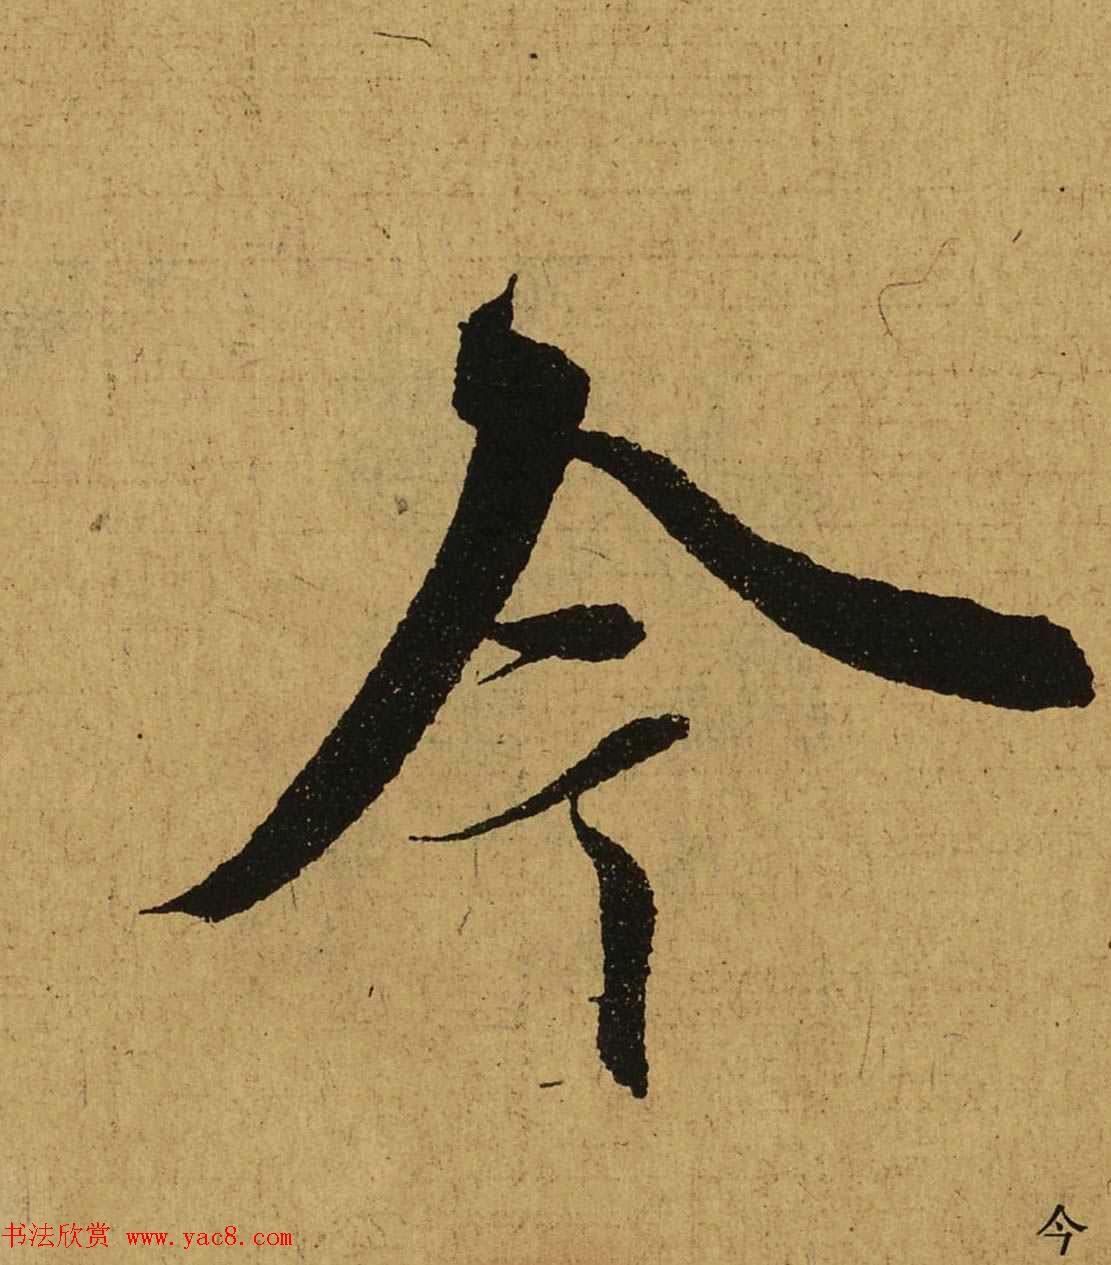 今
书法欣赏 www.yac8.com
今